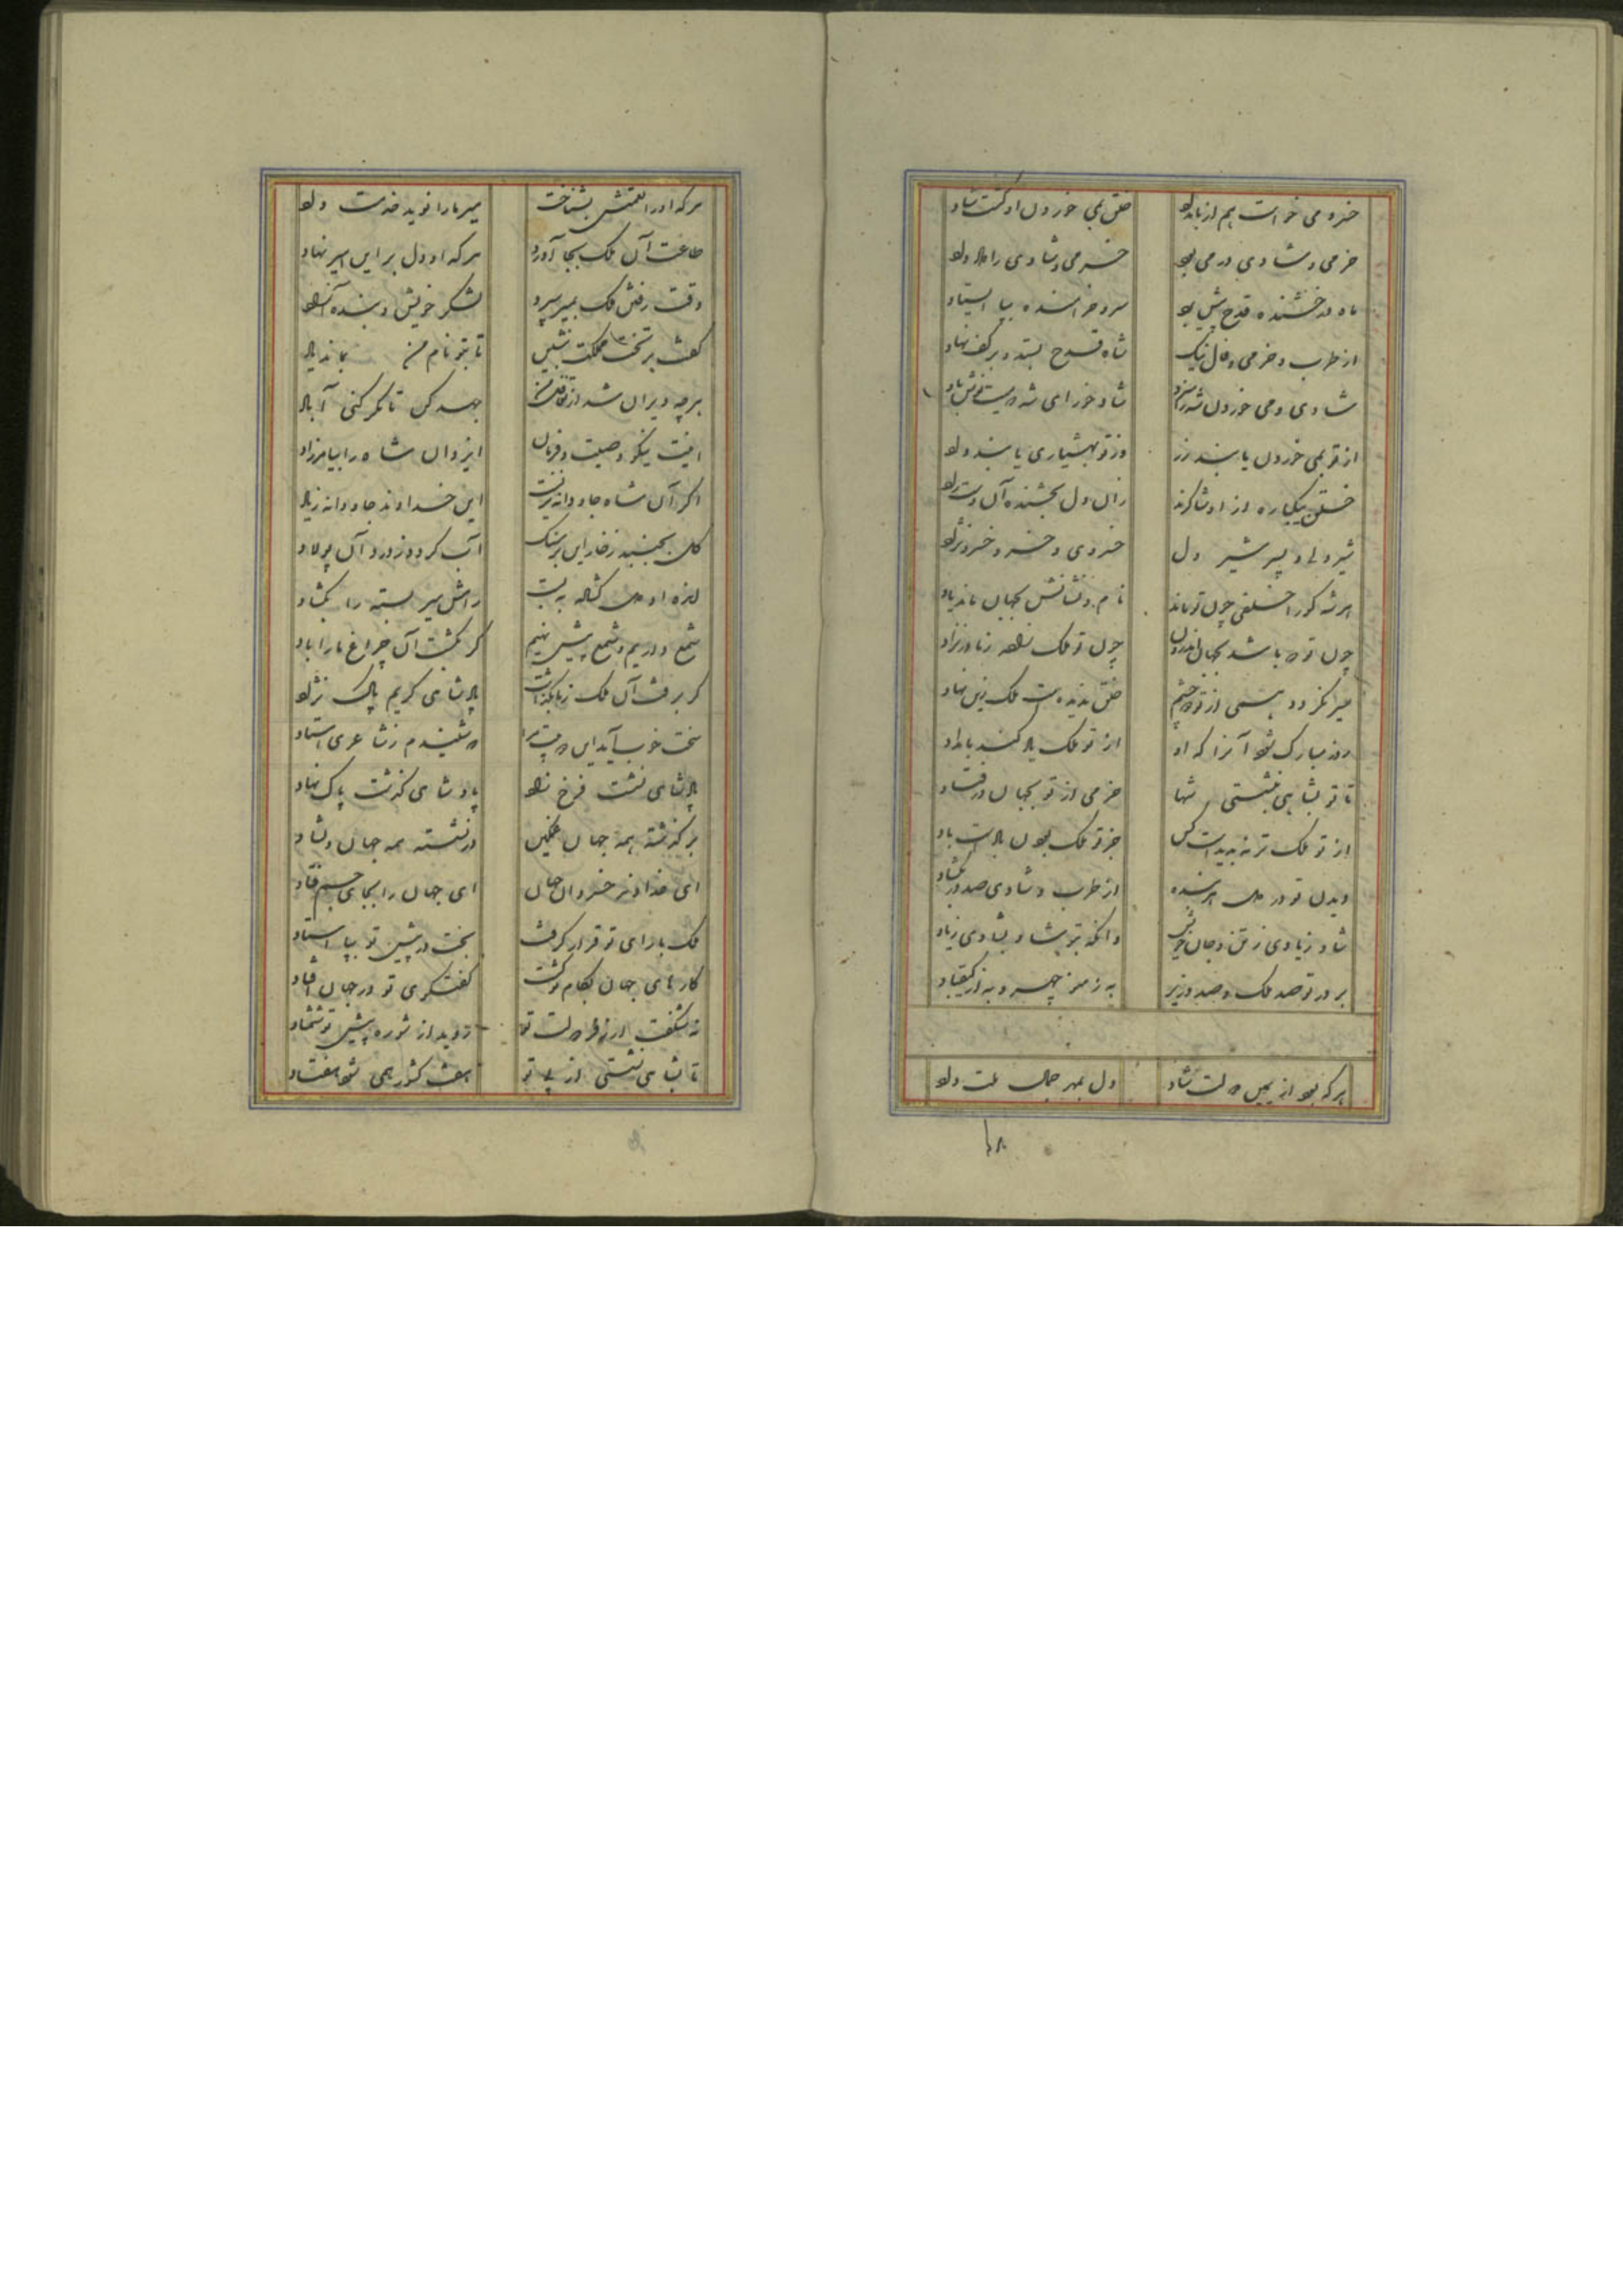 خسرو می خواست هم از بامداد خلق بمی خوردن او گشت شاد
خرمی و شادی در می بود خرمی و شادی را داد داد
ماه درخشنده قدح پیش برد سرو خرامنده بپا ایستاد
از طرب و خرمی و فال نیک شاه قدح بستد و بر کف نهاد
شادی و می خوردن شه را سزد شاد خور ای شه که میت نوش باد
از تو بمی خوردن یابند زر وز تو بهشیاری یابند داد
خلق بیکباره از او شاکرند زان دل بخشنده آن دست راد
شیر دلی و پسر شیر دل خسروی و خسرو خسرو نژاد
هر شه کورا خلفی چون تو ماند نام و نشانش بجهان ماند یاد
چون تو که باشد بجهان اندرون چون تو ملک نبود ز مادر نزاد
سیر نگردد همی از تو دو چشم خلق ندیدست ملک زین نهاد
روز مبارک شود آنرا که او از تو ملک یاد کند بامداد
تا تو بشاهی بنشستی شها خرمی از تو بجهان درفتاد
از تو ملک تر نه بدیدست کس جز تو ملک بودن بادست باد
دیدن تو در دل هر بنده از طرب و شادی صد در گشاد
شاد زیادی ز تن و جان خویش وانکه بتو شاد بشادی زیاد
بر در تو صد ملک و صد وزیر به ز منوچهر و به از کیقباد
هر که بود از یمین دولت شاد دل بمهر جمال ملت داد
هر که او را نعمتش بشناخت میر ما را نوید خدمت داد
طاعت آن ملک بجا آورد هر که او دل بر این امیر نهاد
وقت رفتن ملک بمیر سپرد لشکر خویش و بنده آزاد
گفت بر تخت مملکت بنشین تا بتو نام من بماند یاد
هر چه ویران شد از جهد کن تا مگر کنی آباد
اینت نیکو وصیت و فرمان ایزد آن شاه را بیامرزاد
اگر آن شاه جاودانه نزیست این خداوند جاودانه زیاد
آب کردد ز درد آن پولاد
شمع داریم و شمع پیش نهیم گر بکشت آن چراغ ما را باد
گر برفت آن ملک بما بگذاشت پادشاهی کریم پاک نژاد
سخت خوب آید این دو بیت مرا که شنیدم ز شاعری استاد
پادشاهی نشست فرخ زاد پادشاهی گذشت پاک نهاد
بر گذشته همه جهان غمگین وز نشسته همه جهان دلشاد
ای خداوند خسروان جهان ای جهان را بجای جم و قباد
ملک با رای تو قرار گرفت بخت در پیش تو بپا استاد
کارهای جهان بکام تو گشت گفتگوی تو در جهان افتاد
نه شگفت ار ز فر دولت تو روید از شوره پیش تو شمشاد
تا بشاهی نشستی از پی تو هفت کشور همی شود هفتاد